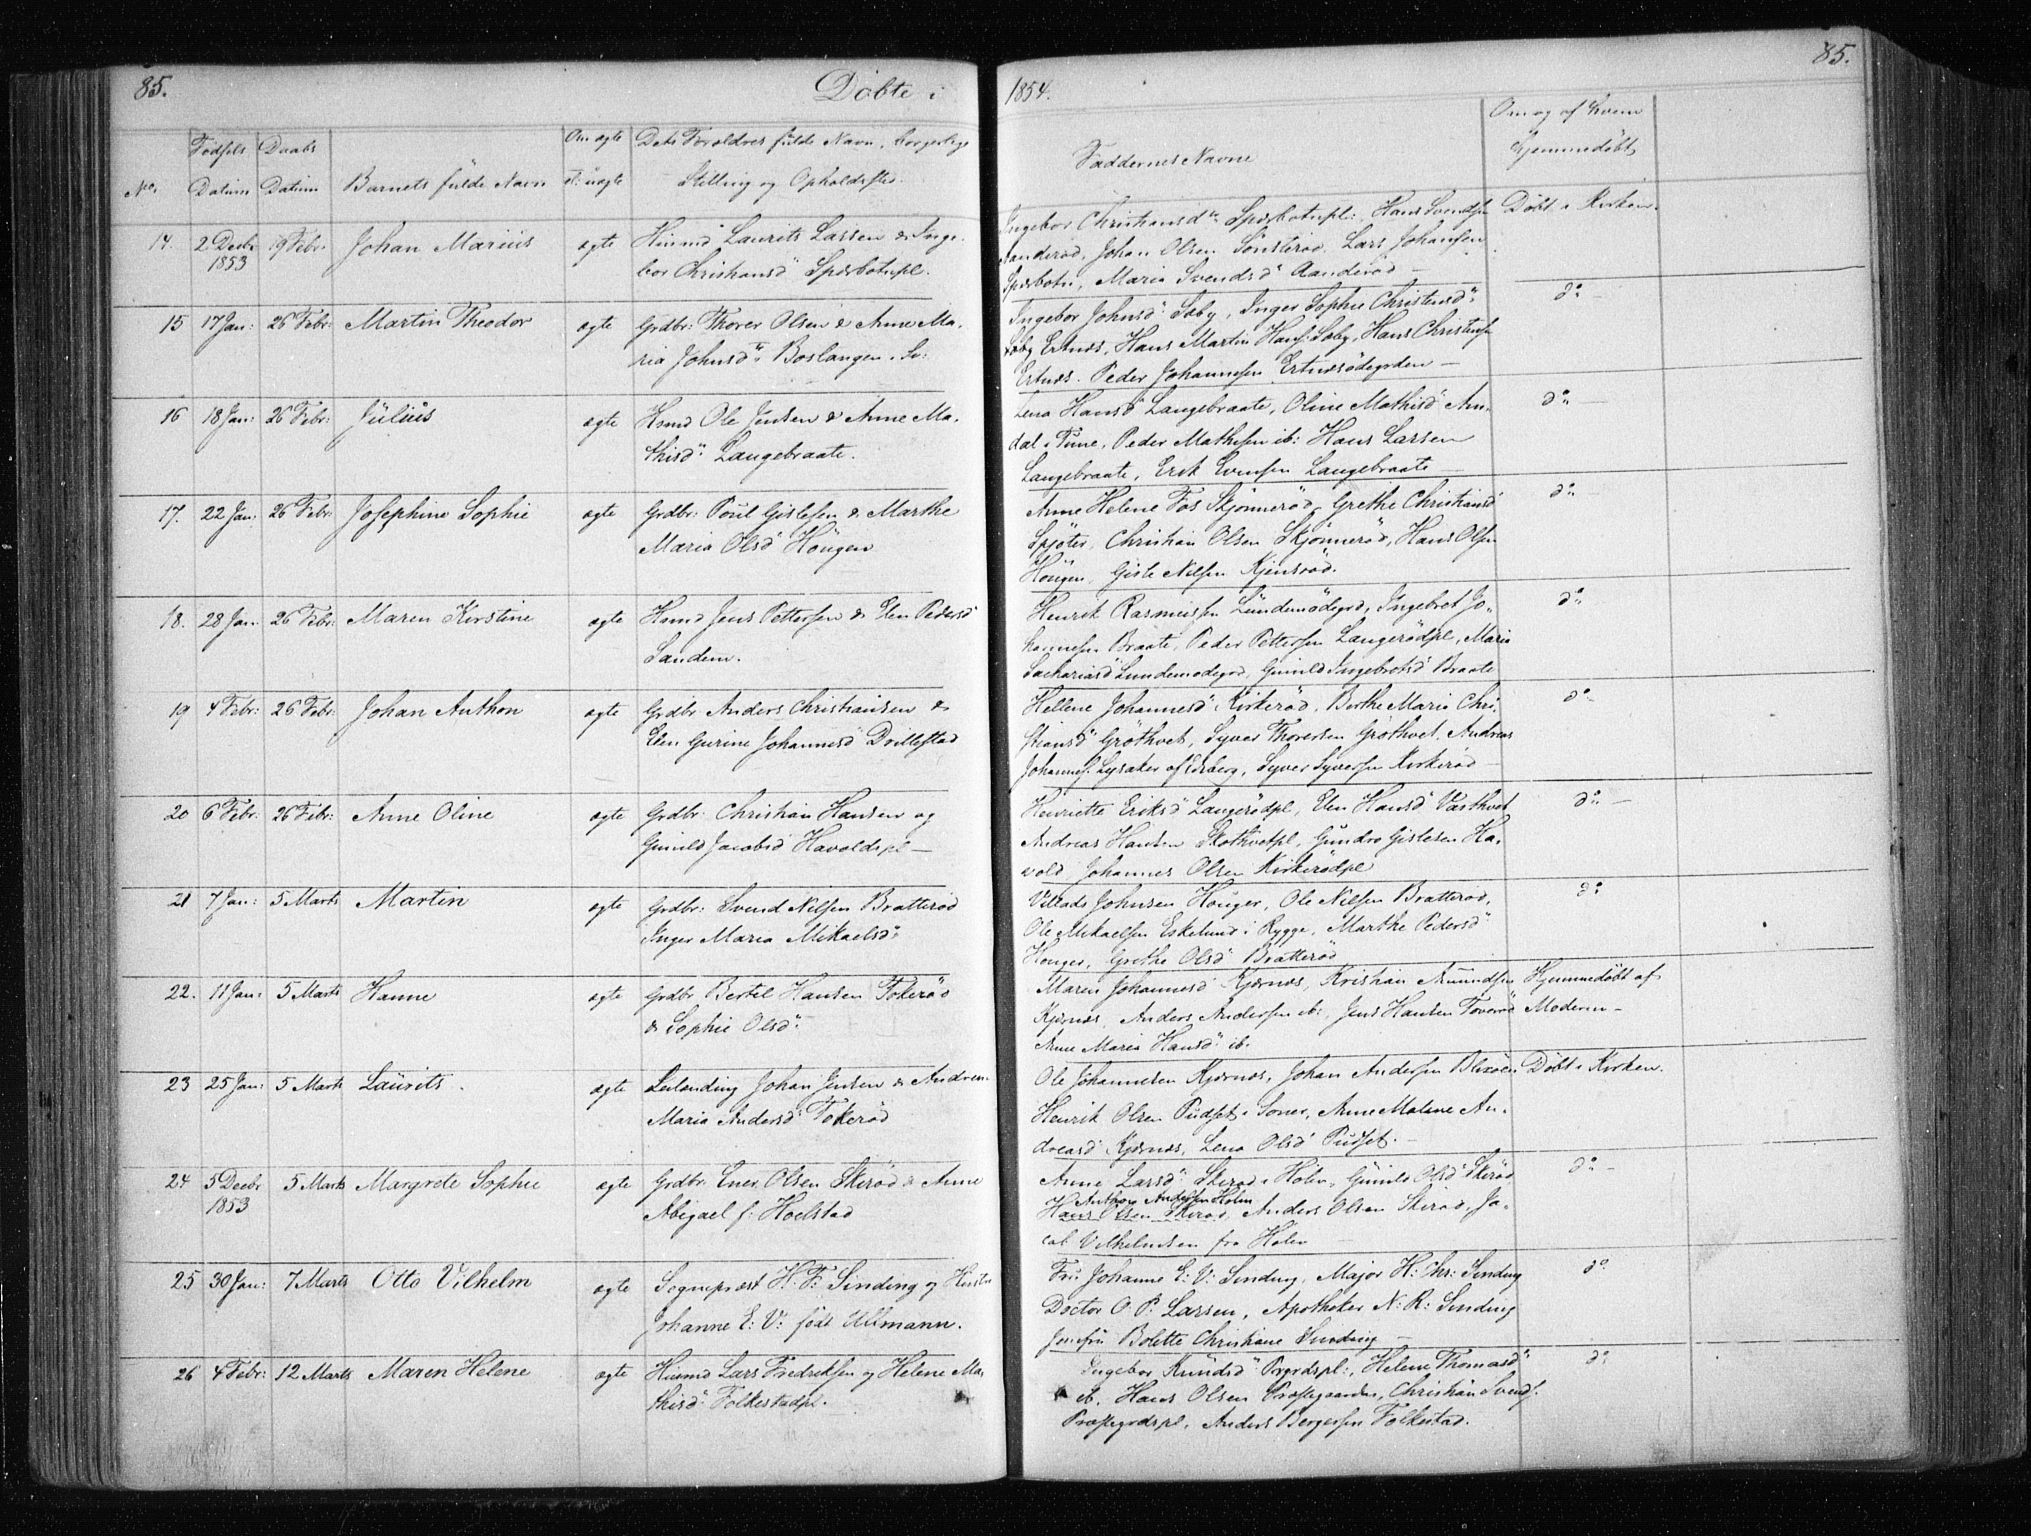 85.
Døbte i
1854.
85.
No.
Fødsels Datum
Daabs Datum
Barnets fulde Navn
Om ægte el: uægte
Dets Forældres fulde Navn, borgerlige
Stilling og Opholdssted.
Faddernes Navne
Om og af hvem
hjemmedøbt
14. 2 Decbr 1853 19 Febr. Johan Marius ægte Huusmd Laurits Larsen & Inge-
bor Christiansd Spærbotnpl.
Ingebor Christiansdr Spærbotnpl: Hans Svendsen
Aanderød, Johan Olsen Sønsterød. Lars Johansen
Spærbotn, Maria Svendsd Aanderød
Døbt i Kirken.
15 17 Jan: 26 Febr: Martin Theodor ægte Grdbr: Thorer Olsen & Anne Ma-
ria Johnsdr Boslangen
Ingebor Johnsd Søby, Inger Sophie Christensdr
Søby Ertnæs, Hans Martin Hans: Søby, Hans Christensen
Ertnæs. Peder Johannesen Ertnæsødegrden
do
16 18 Jan: 26 Febr: Julius ægte Hsmd Ole Jensen & Anne Ma-
thisdr Langebraate.
Lena Hansd Langebraate, Oline Mathisd An-
dal i Tune, Peder Mathisen ib: Hans Larsen
Langebraate, Erik Evensen Langebraate
do
17. 22 Jan: 26 Febr: Josephine Sophie ægte Grdbr: Poul Gislesen & Marthe
Maria Olsd Hougen
Anne Helene Fos Skjønnerød, Grethe Christiansd
Spjøter, Christian Olsen Skjønnerød, Hans Olsen
Hougen, Gisle Nilsen Kjensrød.
do
18. 28 Jan. 26 Febr: Maren Kirstine ægte Hsmd Jens Pettersen & Elen Pedersd
Sandem.
Henrik Rasmussen Lundemødegrd, Ingebret Jo-
hannesen Braate, Peder Pettersen Langerødpl, Maria
Sachariasd Lundemødegrd, Gunild Ingebretsd Braate
do
19 4 Febr: 26 Febr: Johan Anthon ægte Grdbr Anders Christiansen &
Elen Gurine Johannesd Drøllestad
Hellene Johannesd Kirkerød, Berthe Maria Chri-
stiansd Grøthvet, Syver Thoresen Grøthvet, Andreas
Johannes. Lysaker af Edsberg, Syver Syversen Kirkerød
do
20 6 Febr: 26 Febr: Anne Oline ægte Grdbr: Christian Hansen og
Gunild Jacobsd Havoldspl
Henriette Eriksd Langerødpl, Elen Hansd Væsthvet
Andreas Hansen Skothvetpl, Gundro Gislesen Ha-
vold Johannes Olsen Kirkerødpl
do
21 7 Jan: 5 Marts Martin ægte Grdbr: Svend Nilsen Bratterød
Inger Maria Mikaelsdr
Villads Johnsen Houger, Ole Nilsen Bratterød,
Ole Mikaelsen Eskelund i Rygge, Marthe Pedersd
Houger, Grethe Olsd Bratterød
do
22. 11 Jan: 5 Marts Hanne ægte Grdbr Bertel Hansen Tokerød
& Sophie Olsdr
Maren Johannesd Kjærnæs, Kristian Amundsen
Kjærnæs, Anders Andersen ib: Jens Hansen Toverød
Anne Maria Hansd ib.
Hjemmedøbt af
Moderen
23 25 Jan: 5 Marts Laurits. ægte Leilænding Johan Jensen & Andrea
Maria Andersd Tokerød
Ole Johannesen Kjærnæs, Johan Andersen Blixøen
Henrik Olsen Pudset i Soner, Anne Malene An-
dreasd Kjærnæs, Lena Olsd Pudset.
Døbt i Kirken.
24 5 Decbr 1853 5 Marts Margrete Sophie ægte Grdbr. Ener Olsen Skerød & Anne
Abigael f: Hoelstad
Anne Larsd Skerød i Holm, Gunild Olsd Skerød
Anthon Andersen Holm
Hans Olsen Skerød, Anders Olsen Skerød, Ja-
cob Vilhelmsen fra Holm
do
25 30 Jan: 7 Marts Otto Vilhelm ægte Sognepræst H. F: Sinding og Hustr
Johanne E: V: født Ullmann.
Fru Johanne E: V: Sinding, Major H: Chr: Sinding
Doctor O. P: Larsen, Apotheker N: R: Sinding
Jomfru Bolette Christiane Sinding
do
26 4 Febr: 12 Marts Maren Helene ægte Huusmd Lars Fredriksen og Helene Ma-
thisd Folkestadpl.
Ingebor Knudsd Prgrdspl:, Helene Thomasd
ib. Hans Olsen Præstegaarden, Christian Svends.
Præstegrdspl, Anders Bergersen Folkestad.
do